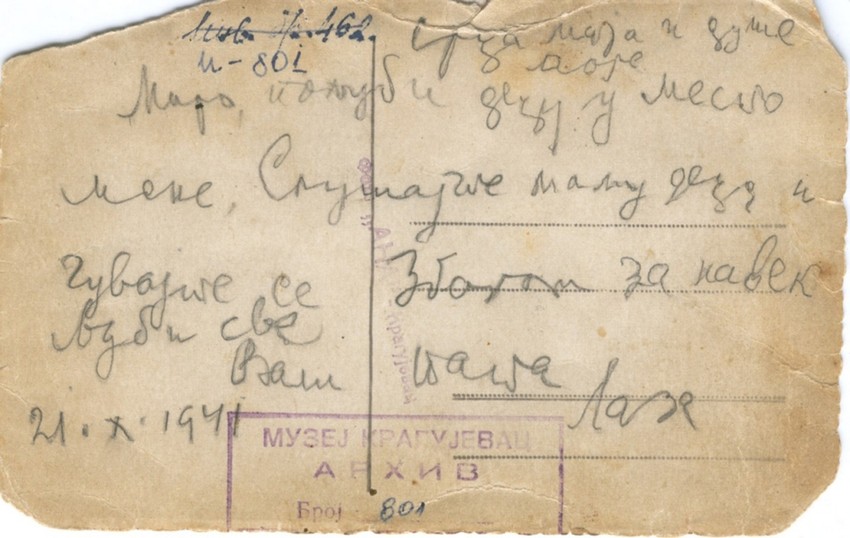 Инв. бр. 462.
И-801
срца моја и душе
моје
Маро, пољуби децу у место
мене, Слушајте маму децо и
чувајте се Збогом за навек
Љуби све
Ваш тата
Лаза
21.X.1941
МУЗЕЈ КРАГУЈЕВАЦ
АРХИВ
Број 801